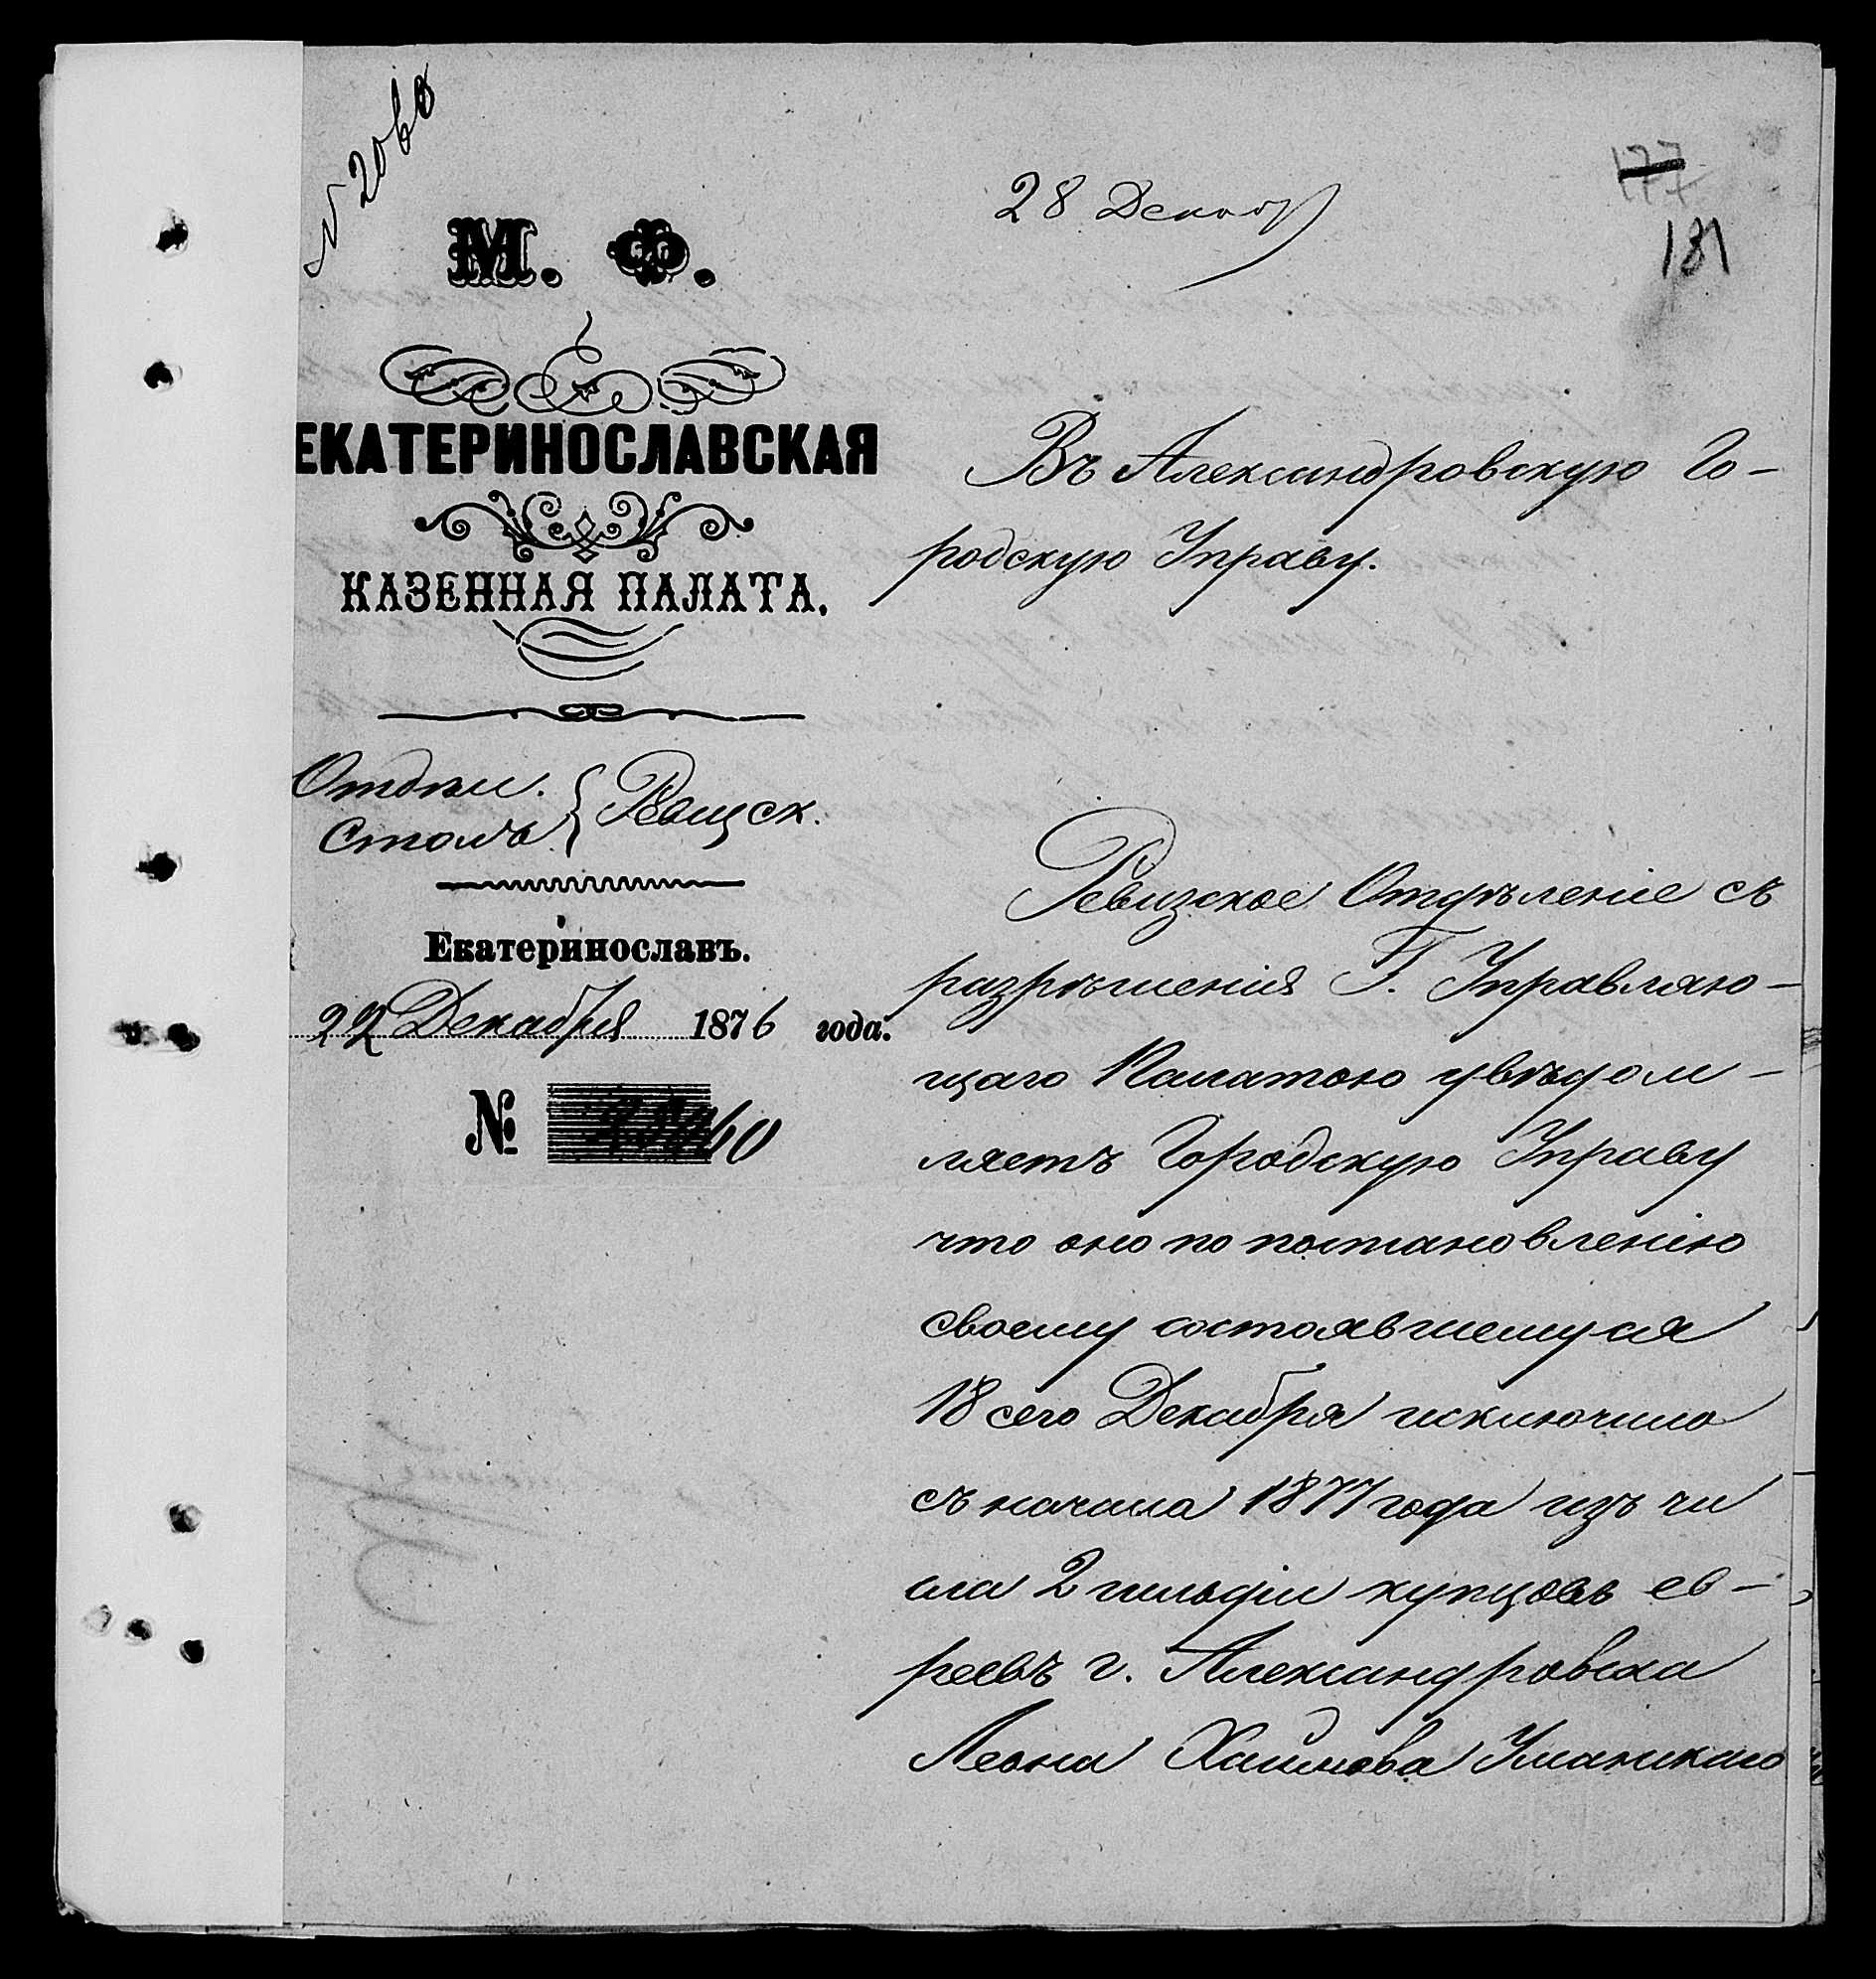 28 Декабр
177
181
М. Ф.
ЕКАТЕРИНОСЛАВСКАЯ
КАЗЕННАЯ ПАЛАТА.
Отдѣл.
Столъ } Ревизск.
Екатеринославъ.
22 Декабря 1876 года.
№
Въ Александровскую Го-
родскую Управу.
Ревизское Отдѣленіе съ
разрѣшенія Г. Управляю-
щаго Палатою увѣдом-
ляетъ Городскую Управу
что оно по постановленію
своему состоявшемуся
18 сего Декабря исключило
съ начала 1877 года изъ чи
сла 2 гильдіи купцовъ ев-
реевъ г. Александровска
Леона Хаимова Уманскаго